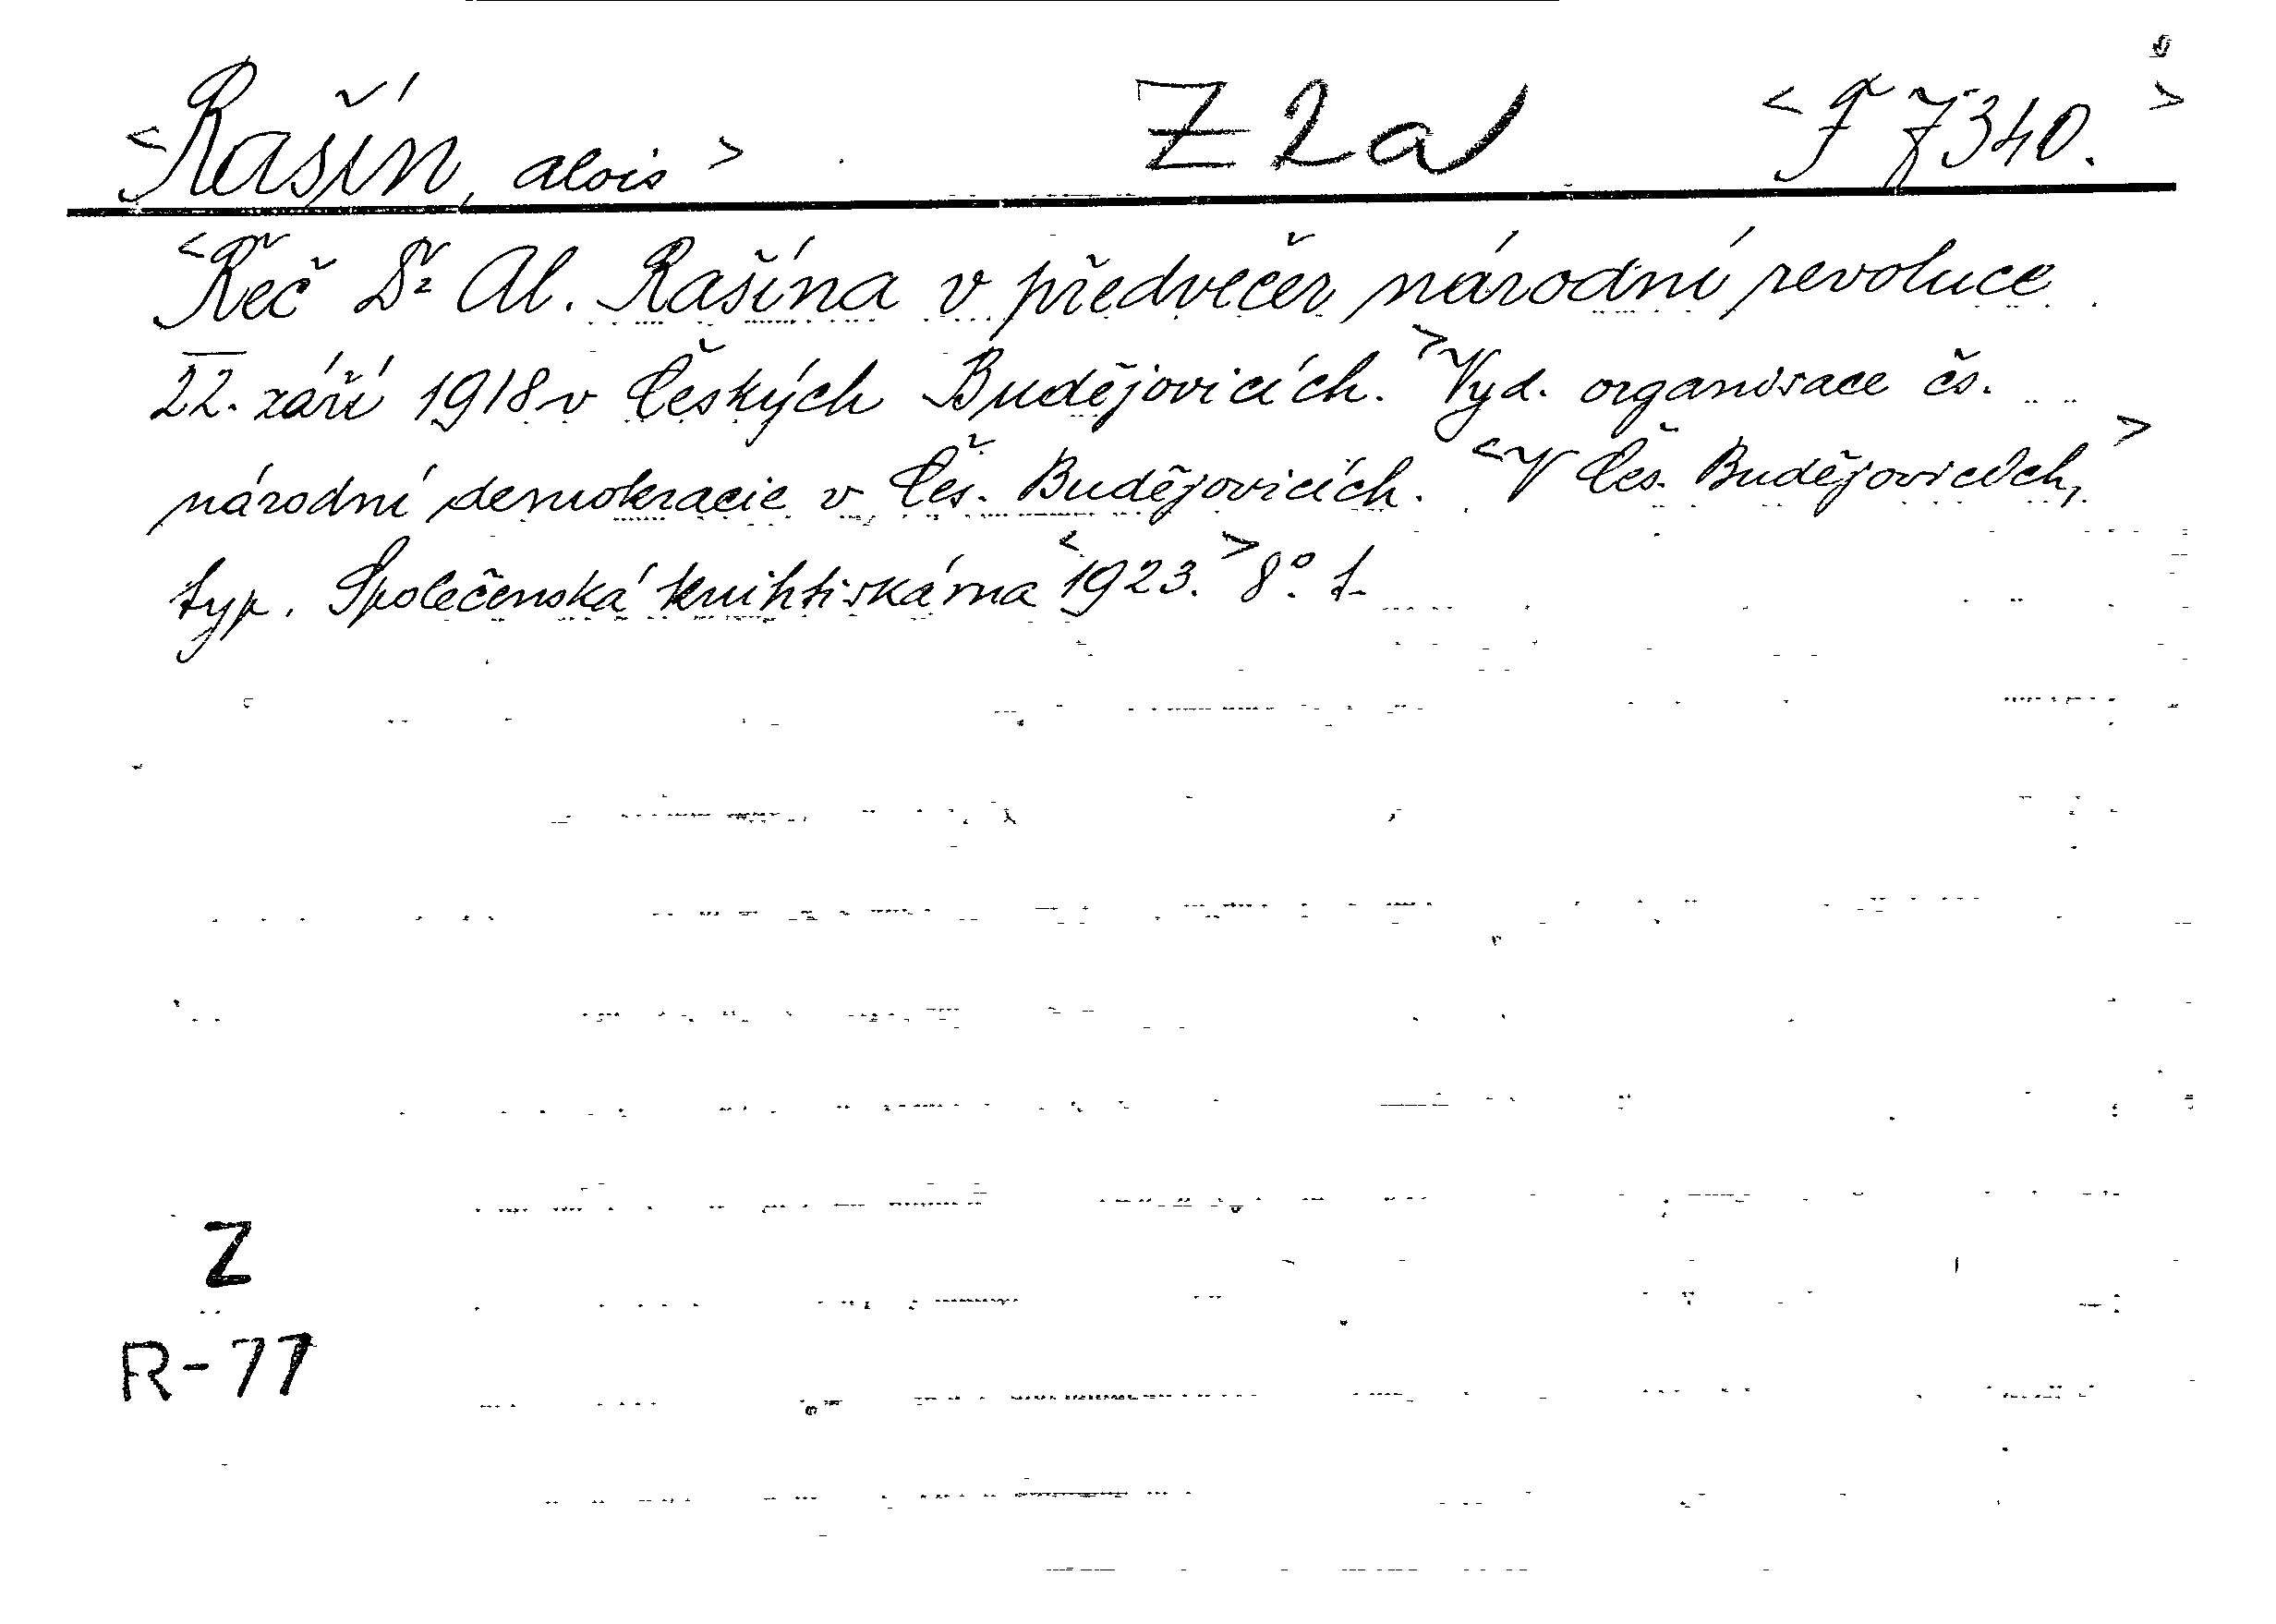 <Rašín, Alois> Z 2a <F 7340.>
<Řeč Dr Al. Rašína v předvečer národní revoluce
22. září 1918 v Českých Budějovicích.> Vyd. organisace čs.
národní demokracie v Čes. Budějovicích. <V Čes. Budějovicích,>
typ. Společenská knihtiskárna <1923.> 8°.
Z
R-77